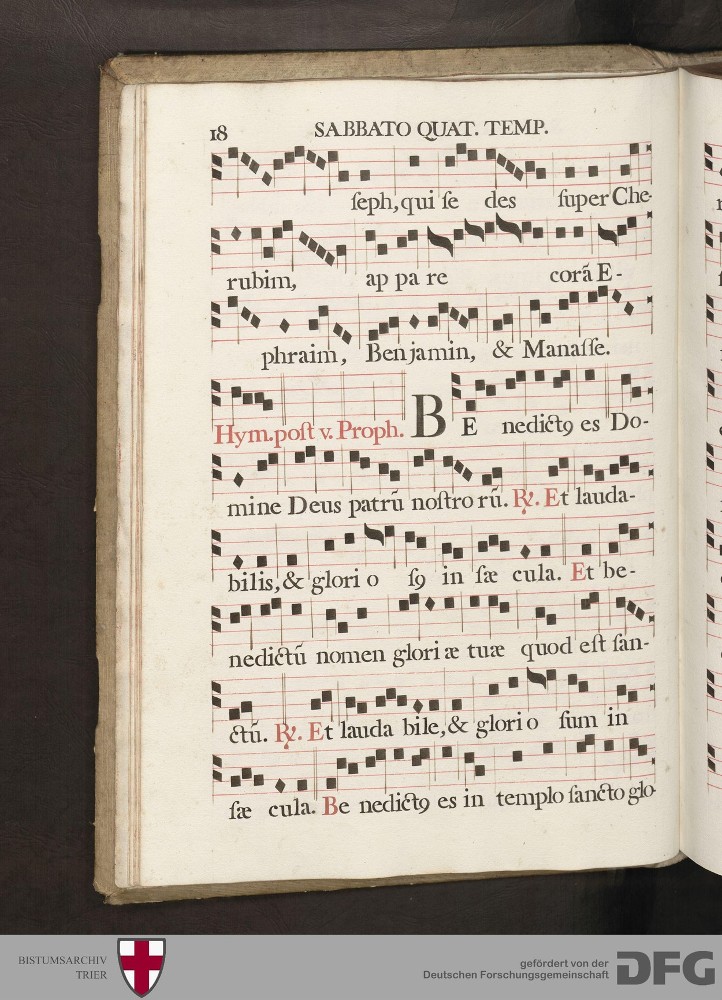 18 SABBATO QUAT. TEMP.
ſeph, qui ſe des ſuper Che-
rubim, ap pa re corã E-
phraim, Benjamin, & Manaſſe.
Hym. poſt v. Proph. BE nedictꝯ es Do-
mine Deus patrũ noſtro rũ. ℟. Et lauda-
bilis, & glori o ſꝯ in ſæ cula. Et be-
nedictũ nomen glori æ tuæ quod eſt ſan-
ctũ. ℟. Et lauda bile, & glori o ſum in
ſæ cula. Be nedictꝯ es in templo ſancto glo-
BISTUMSARCHIV
TRIER
gefördert von der
Deutschen Forschungsgemeinschaft
DFG